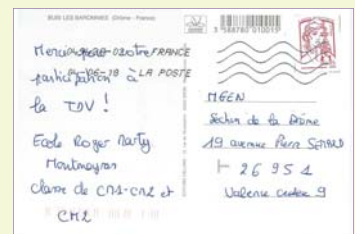 BUIS LES BARONNIES (Drôme - France)
3 588780 010019
Merci pour votre
FRANCE
participation à
LA POSTE
la TDV !
Ecole Roger Marty
Montmeyran
classe de CM1-CM2 et
CM2
MGEN
Section de la Drôme
19 avenue Pierre SEMARD
26951
Valence cedex 9